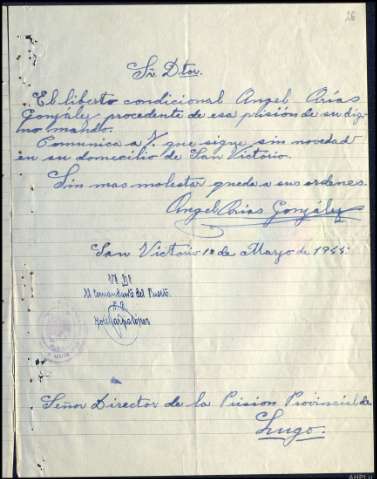 26
Sr. Dtor.
El liberto condicional Angel Arías
González procedente de esa prisión de su dig-
no mando.
Comunica a V. que sigue sin novedad
en su domicilio de San Victorio.
Sin mas molestar queda a sus ordenes.
Angel Arias González
San Victorio 1º de Marzo de 1944:
Vº Bº
El Comandante del Puesto.
Señor Director de la Prision Provincial de
Lugo.